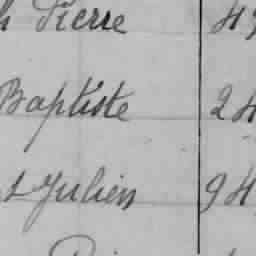 Pierre 49
Baptiste 24
t Julien 94